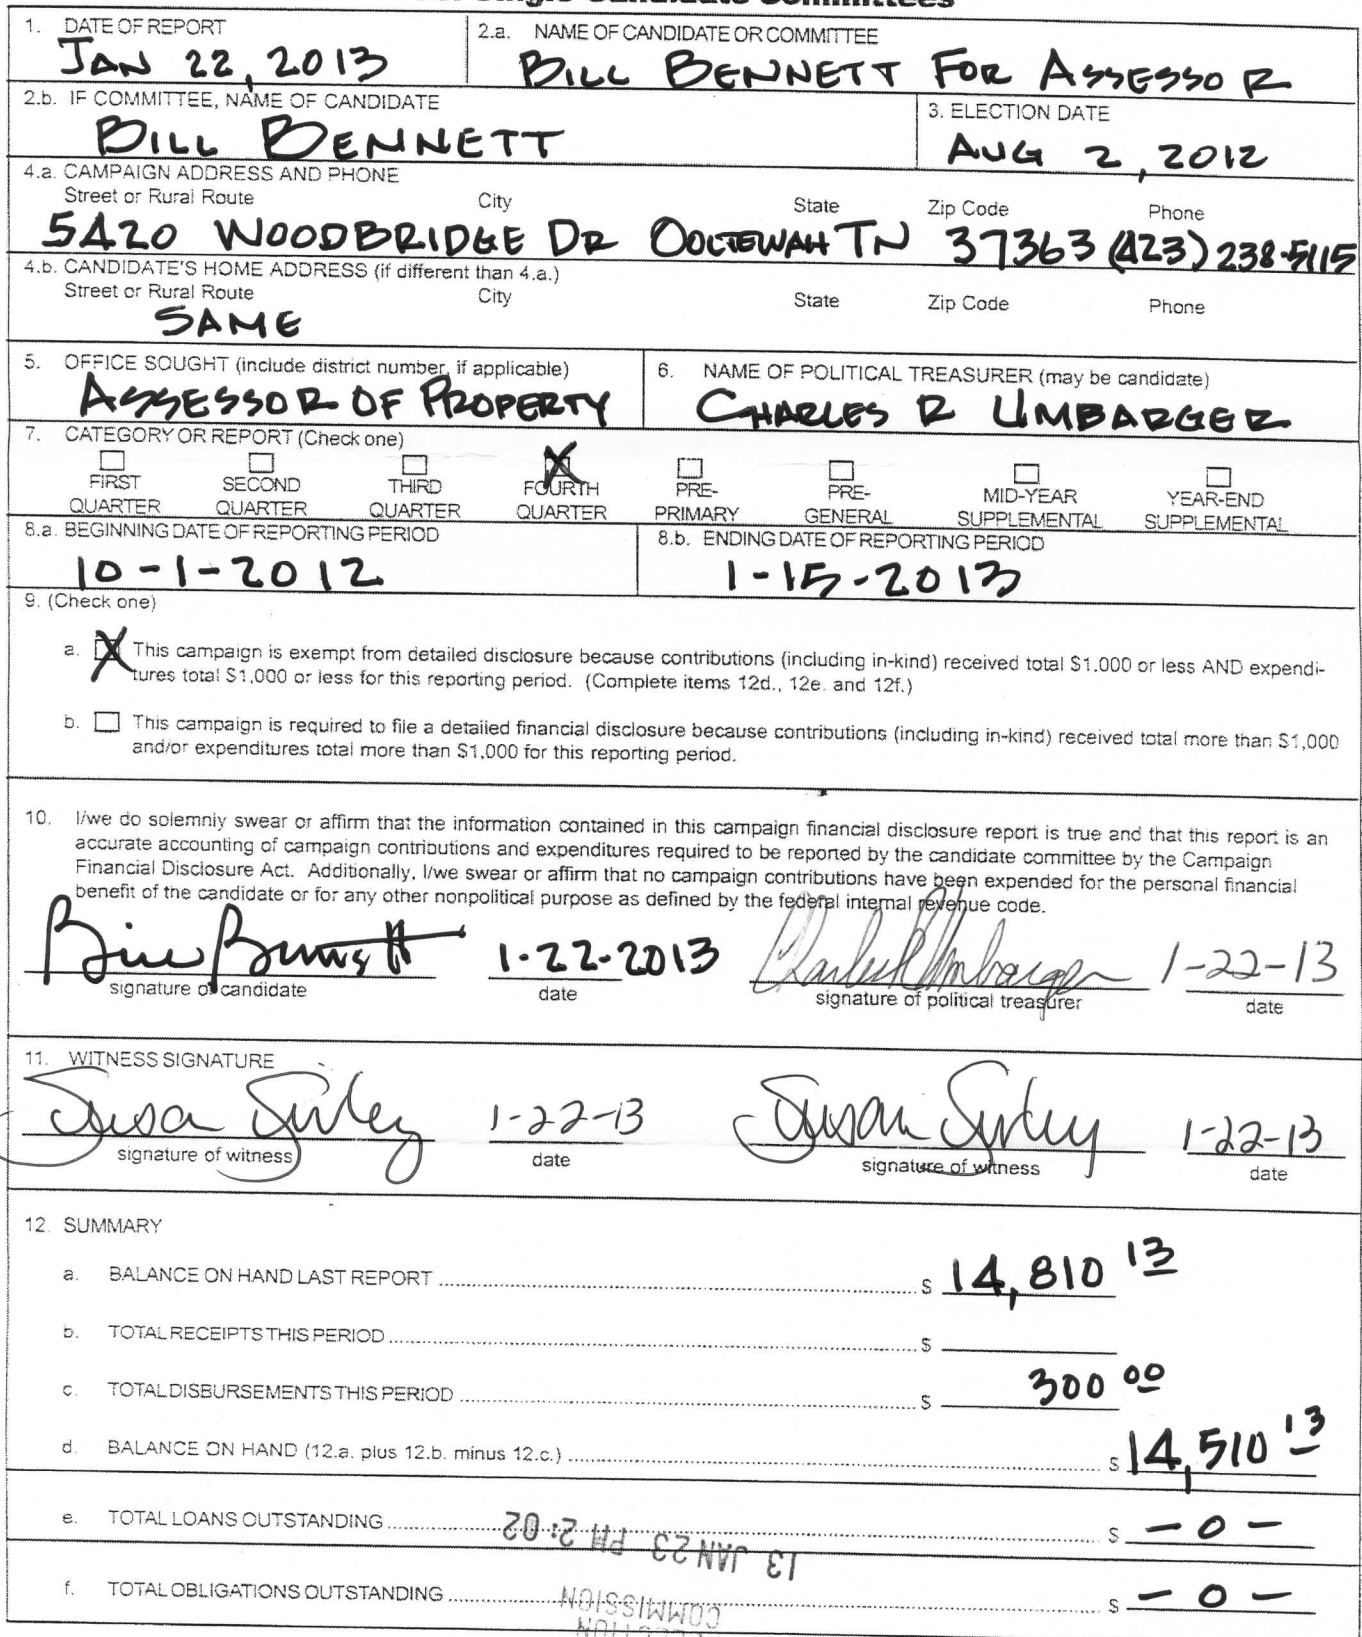 For Single Candidate Committees
1. DATE OF REPORT
JAN 22, 2013
2.a. NAME OF CANDIDATE OR COMMITTEE
BILL BENNETT FOR ASSESSOR
2.b. IF COMMITTEE, NAME OF CANDIDATE
BILL BENNETT
3. ELECTION DATE
AUG 2, 2012
4.a. CAMPAIGN ADDRESS AND PHONE
Street or Rural Route City State Zip Code Phone
5420 WOODBRIDGE DR OOLTEWAH TN 37363 (423) 238-5115
4.b. CANDIDATE'S HOME ADDRESS (if different than 4.a.)
Street or Rural Route City State Zip Code Phone
SAME
5. OFFICE SOUGHT (include district number, if applicable)
ASSESSOR OF PROPERTY
6. NAME OF POLITICAL TREASURER (may be candidate)
CHARLES R UMBARGER
7. CATEGORY OR REPORT (Check one)
FIRST QUARTER
SECOND QUARTER
THIRD QUARTER
X FOURTH QUARTER
PRE-PRIMARY
PRE-GENERAL
MID-YEAR SUPPLEMENTAL
YEAR-END SUPPLEMENTAL
8.a. BEGINNING DATE OF REPORTING PERIOD
10-1-2012
8.b. ENDING DATE OF REPORTING PERIOD
1-15-2013
9. (Check one)
a. X This campaign is exempt from detailed disclosure because contributions (including in-kind) received total $1,000 or less AND expendi-
tures total $1,000 or less for this reporting period. (Complete items 12d., 12e. and 12f.)
b. This campaign is required to file a detailed financial disclosure because contributions (including in-kind) received total more than $1,000
and/or expenditures total more than $1,000 for this reporting period.
10. I/we do solemnly swear or affirm that the information contained in this campaign financial disclosure report is true and that this report is an
accurate accounting of campaign contributions and expenditures required to be reported by the candidate committee by the Campaign
Financial Disclosure Act. Additionally, I/we swear or affirm that no campaign contributions have been expended for the personal financial
benefit of the candidate or for any other nonpolitical purpose as defined by the federal internal revenue code.
Bill Bennett 1-22-2013 Charles R Umbarger 1-22-13
signature of candidate date signature of political treasurer date
11. WITNESS SIGNATURE
Susan 1-22-13 Susan 1-22-13
signature of witness date signature of witness date
12. SUMMARY
a. BALANCE ON HAND LAST REPORT $ 14,810 13
b. TOTAL RECEIPTS THIS PERIOD $
c. TOTAL DISBURSEMENTS THIS PERIOD $ 300 00
d. BALANCE ON HAND (12.a. plus 12.b. minus 12.c.) $ 14,510 13
e. TOTAL LOANS OUTSTANDING $ -0-
13 JAN 23 PM 2:02
f. TOTAL OBLIGATIONS OUTSTANDING $ -0-
COMMISSION